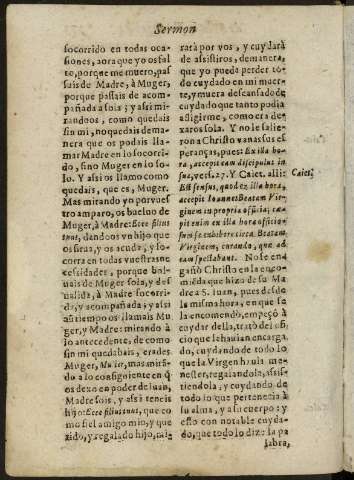 Sermon
socorrido en todas oca-
siones, aora que yo os fal
to, porque me muero, pas
sais de Madre, à Muger,
porque passais de acom-
pañada à sola; y assi mi-
randoos, como quedais
sin mi, no quedais de ma-
nera que os podais lla-
mar Madre en lo socorri-
do, sino Muger en lo so-
lo. Y assi os llamo como
quedais, que es, Muger.
Mas mirando yo por vues
tro amparo, os buelvo de
Muger, à Madre: Ecce filius
tuus, dandoos vn hijo que
os sirua, y os acuda, y so-
corra en todas vuestras ne
cessidades, porque bol-
uais de Muger sola, y des
ualida, à Madre socorri-
da, y acompañada; y assi
a vn tiempo os llamais Mu
ger, y Madre: mirando à
lo antecedente, de como
sin mi quedabais, erades
Muger, Mulier, mas mirã
do a lo consiguiente en q̃
os dexo en poder de Iuan,
Madre sois, y assi teneis
hijo: Ecce filius tuus, que co
mo fiel amigo mio, y que
rido, y regalado hijo, mi-
rarà por vos, y cuydarà
de assistiros, de manera,
que yo pueda perder to-
do cuydado en mi muer-
te, y muera descansado de
cuydado que tanto podia
afligirme, como era de-
xaros sola. Y no le salie-
ron a Christo vanas sus es
peranças, pues: Ex illa ho-
ra, accepit eam discipulus in
sua, vers. 27. Y Caiet. alli:
Caiet.
Est sensus, quod ex illa hora,
accepit Ioannes Beatam Vir-
ginem in propria officia; cæ-
pit enim ex illa hora officio-
sum se exhibere circa Beatam
Virginem, curando, quæ ad
eam spectabant. No se en
gañò Christo en la enco-
mienda que hizo de su Ma
dre a S. Iuan, pues desde
la misma hora, en que se
la encomendò, empeçò à
cuydar della, tratò del ofi-
cio que le hauian encarga
do, cuydando de todo lo
que la Virgen hauia me-
nester, regalandola, assis-
tiendola, y cuydando de
todo lo que pertenecia à
su alma, y a su cuerpo: y
esto con notable cuyda-
do, que todo lo dize la pa
labra,